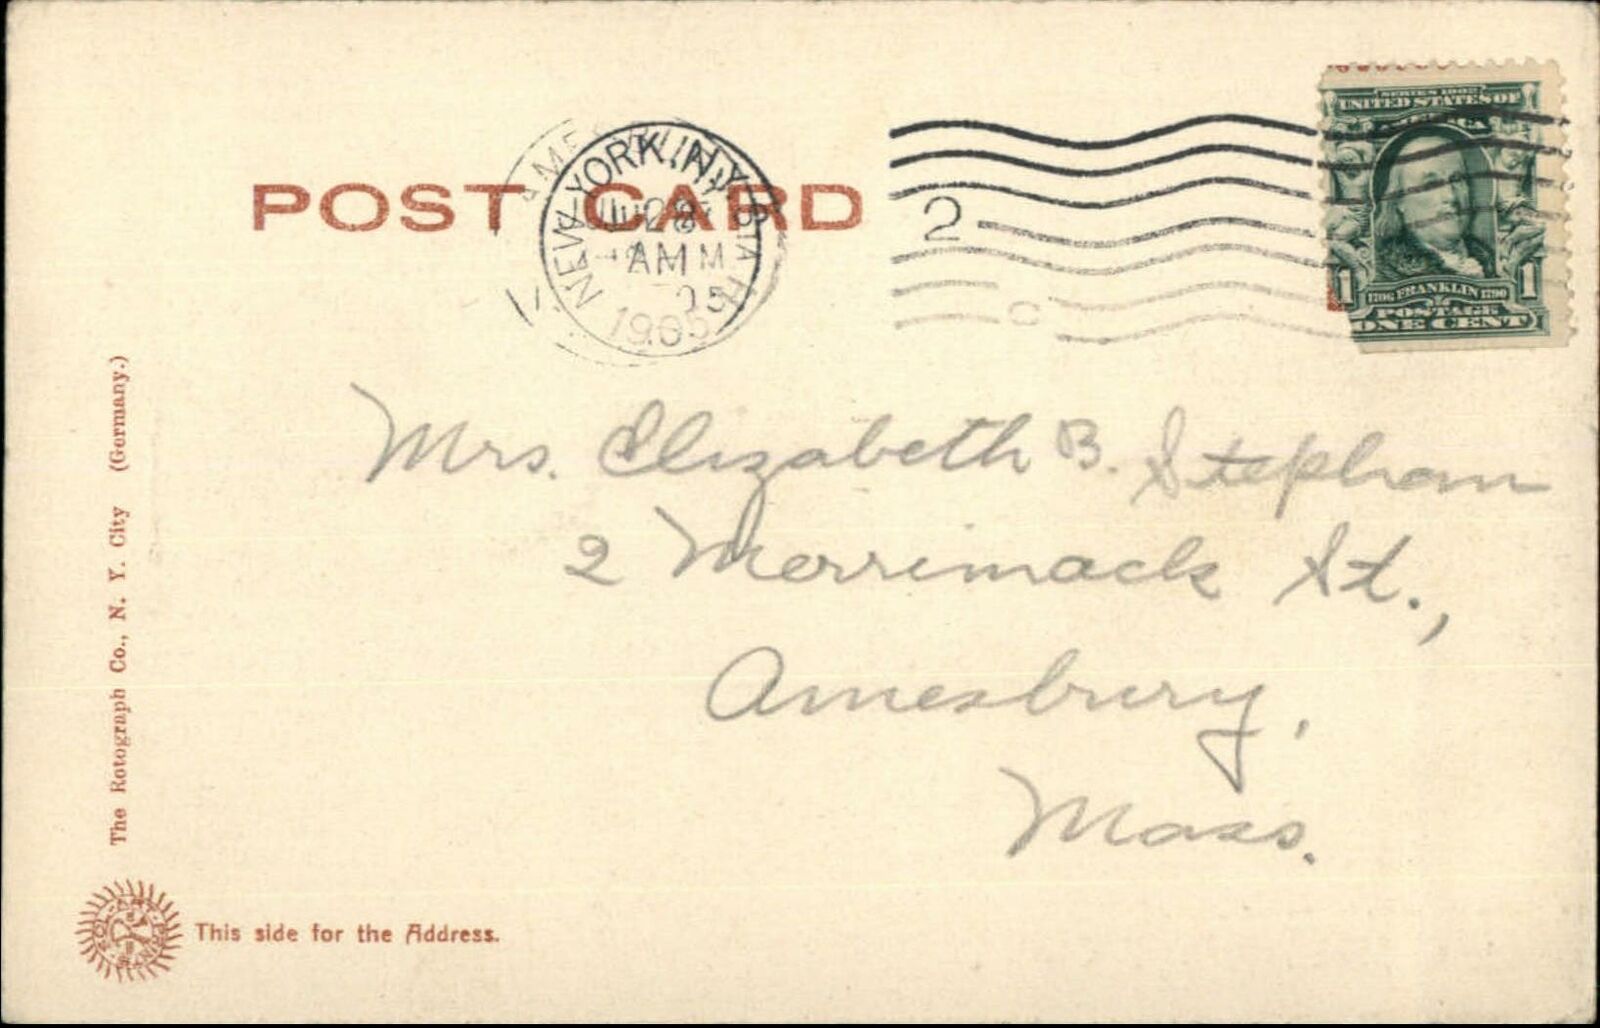 POST CARD
NEW YORK, N.Y. STA H
AM
1905
2
SERIES 1902
UNITED STATES OF
AMERICA
1706 FRANKLIN 1790
1 1
POSTAGE
ONE CENT
Mrs. Elizabeth B. Stephan
2 Merrimack St.,
Amesbury,
Mass.
The Rotograph Co., N. Y. City (Germany.)
This side for the Address.